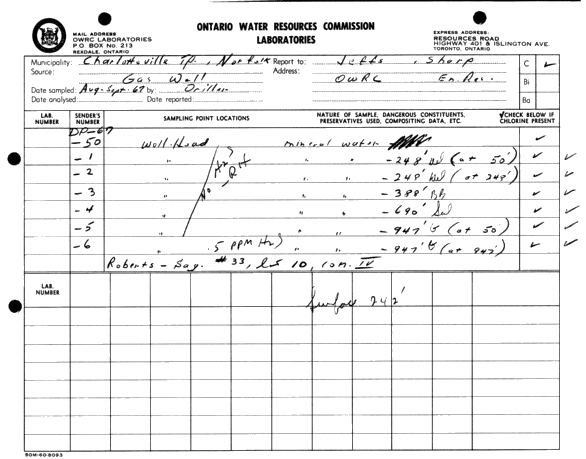 ONTARIO WATER RESOURCES COMMISSION
LABORATORIES
MAIL ADDRESS
OWRC LABORATORIES
P.O. BOX No. 213
REXDALE, ONTARIO
EXPRESS ADDRESS:
RESOURCES ROAD
HIGHWAY 401 & ISLINGTON AVE.
TORONTO, ONTARIO
Municipality: Charlotteville Tp., Norfolk Report to: Jetts, Sharp C ✓
Source: Gas Well Address: OWRC En. Res. Bi
Date sampled: Aug-Sept-67 by: Driller
Date analysed: Date reported: Ba
LAB. NUMBER SENDER'S NUMBER SAMPLING POINT LOCATIONS NATURE OF SAMPLE, DANGEROUS CONSTITUENTS, PRESERVATIVES USED, COMPOSITING DATA, ETC. ✓CHECK BELOW IF CHLORINE PRESENT
DP-67
-50 Well-Head mineral water ✓
-1 " " " -248' (at 50') ✓ ✓
-2 " " " -248' (at 248') ✓ ✓
-3 " " " -388' ✓ ✓
-4 " " " -690' ✓ ✓
-5 " " " -947' (at 50') ✓ ✓
-6 .5 PPM H2) " " -947' (at 947') ✓ ✓
Roberts - Sag. #33, LS 10, con. IV
LAB. NUMBER
Surface 242'
50M-60-8093